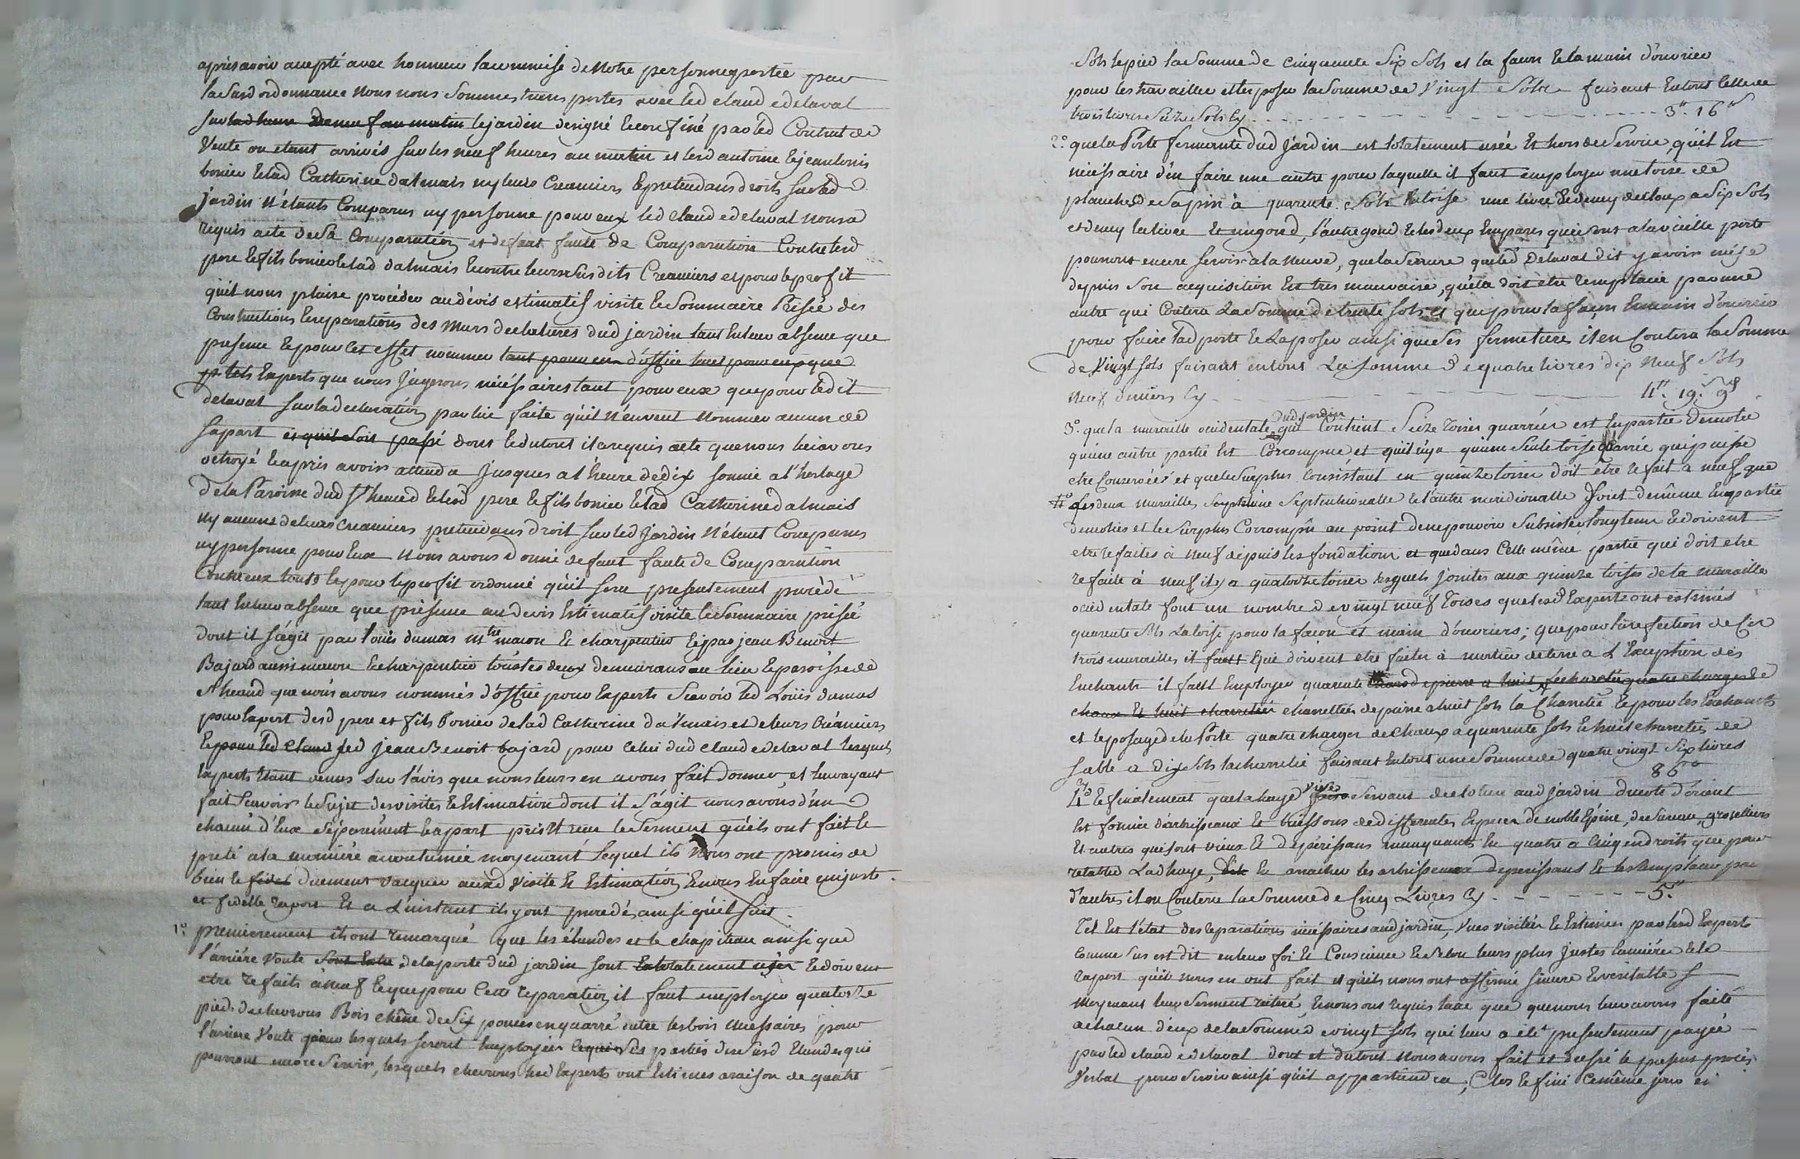 après avoir accepté avec honneur la commise de Notre personne portée par
la Susd ordonnance Nous nous Sommes transportés avec led claude delaval
le jardin designé Et confiné par led Contrat de
Vente ou etant arrivés Sur les neuf heures au matin et lesd antoine Et jean louis
bonier Et lad Catherine dalmais ny leurs Creanciers Et pretendans droits Sur led
jardin N'étants Comparus ny personne pour eux led claude delaval nous a
requis acte de Sa Comparution et defaut faute de Comparution Contre lesd
pere Et fils bonier Et lad dalmais Et contre leurs Susdits Creanciers et pour le profit
qu'il nous plaise procéder au dévis estimatif visite Et Sommaire Prisée des
Constructions Et reparations des Murs de clotures dud jardin tant En leur absence que
presence Et pour Cet effet nommer
Experts que nous Jugerons nécéssaires tant pour eux que pour led dit
delaval Sur la declaration par lui faite qu'il N'en veut Nommer aucun de
Sa part dont Et du tout il a requis acte que nous lui avons
octroyé Et apres avoir attendu Jusques a l'heure de dix Sonnée a l'horloge
De la Paroisse dud St heand Et lesd pere Et fils bonier Et lad Catherine dalmais
ny aucuns de leurs Creanciers pretendans droit Sur led Jardin N'étant Comparus
ny personne pour Eux Nous avons Donné defaut faute de Comparution
Contre eux tous Et pour le profit ordonné qu'il Sera presentement procédé
tant En leur absence que présence au devis Estimatif visite Et Sommaire prisée
dont il s'agit par louis dumas mtre macon Et charpentier Et par jean Benoit
Bajard aussi maçon Et charpentier tous les deux demeurans au lieu Et paroisse de
St heand que nous avons nommés d'office pour Experts Scavoir led Louis dumas
pour Expert desd pere et fils Bonier de lad Catherine dalmais et de leurs Créanciers
Et pour led jean Benoit bajard pour Celui dud claude delaval Lesquels
Experts Etant venus Sur l'avis que nous leurs en avons fait donner, et leur ayant
fait Scavoir le Sujet des visites Et Estimation dont il s'agit nous avons d'un
chacun d'Eux Séparément Et apart pris Et recu le Serment qu'ils ont fait Et
preté a la manière accoutumée moyenant lequel ils Nous ont promis de
bien Et duement vacquer auxd Visite Et Estimation, Et nous En faire un juste
et fidelle raport Et a L'instant ils y ont procédés ainsi qu'il Suit
1o premierement ils ont remarqué que les élandes et le chapiteau ainsi que
l'arriére Voute de la porte dud jardin Sont Et doivent
etre refaits a neuf Et que pour Cette reparation il faut employer quatorze
pieds de chevrons Bois chêne de Six pouces en quarré outre les bois necessaires pour
l'arriere Voute pour lesquels Seront Employées les parties desd Elandes qui
pourront encore Servir, lesquels chevrons lesd Experts ont Estimés a raison de quatre
Sols le pied la Somme de Cinquante Six Sols et la facon Et la main d'ouvrier
pour les travailler et les poser la Somme de Vingt Sols faisant En tout Celle de
trois livres Seize Sols Cy 3ll 16s
2o que la Porte fermante dud Jardin est totalement usée Et hors de Service, qu'il Est
nécéssaire d'en faire une autre pour laquelle il faut Employer une toise de
planches de Sapin à quarante Sols la toise une livre Et demy de cloux a Six Sols
et demy la livre Et un gond, l'autre gond Et les deux Empares qui sont a la vieille porte
pourront encore Servir a la Neuve, que la Serrure que led Delaval dit y avoir mise
depuis Son acquisition Est tres mauvaise, qu'Ela doit etre remplacée par une
autre qui Coutera La Somme de trente Sols Et que pour la façon Et main d'ouvrier
pour faire lad porte Et La poser ainsi que Ses fermeture il en Coutera la Somme
de Vingt Sols faisant en tout La Somme De quatre livres dix Neuf Sols
Neuf deniers Cy 4ll 19s 9d
3o que la muraille occidentale dud jardin qui Contient Seize Toises quarrées est En partie Demolie
qu'une autre partie Est Corrompue et qu'il n'y a qu'une Seule toise quarrée qui puisse
etre Conservée et que le Surplus Consistant en quinze toises doit etre refait a neuf que
4o Les deux murailles Scavoir l'une Septentrionalle Et l'autre méridionalle Sont de même En partie
demolies et le Surplus Corrompû au point de ne pouvoir Subsister longtems Et doivent
etre refaites à Neuf depuis les fondations et que dans Cette même partie qui doit etre
refaite à neuf il y a quatorze toises lesquels Jointes aux quinze toises de la muraille
occidentale font un nombre de vingt neuf Toises que lesd Experts ont estimés
quarante Sols La toise pour la facon et main d'ouvriers; que pour la refection de Ces
trois murailles qui doivent etre faites à mortier de terre a L'Exception des
Enchants il faut Employer quarante
charretées de pierre a huit Sols la Charretée Et pour les Enchants
et le posage de la Porte quatre charges de Chaux a quarante Sols Et huit charretées de
Sable a dix Sols la charretée faisant En tout une Somme de quatre vingt Six livres
86ll
Et finalement que la haye vive Servant de cloture aud Jardin du coté d'orient
Est formée d'arbrisseaux Et buissons de differentes Especes de noble Epine, de Sureau, groselliers
Et autres qui sont vieux Et dépérissans manquants En quatre a Cinq endroits que pour
retablir Lad haye, Et arracher les arbrisseaux deperissans Et les Remplacer par
d'autres il en Coutera la Somme de Cinq Livres Cy 5ll
Tel Est l'état des reparations nécéssaires aud jardin, Vues visitées Et Estimées par lesd Experts
Comme Sus est dit en leur foi Et Conscience Et Selon leurs plus Justes lumiéres Et le
raport qu'ils nous en ont fait et qu'ils nous ont affirmé Sincere Et veritable
Moyenant leur Serment reiteré, Et nous ont requis taxe que que nous leur avons faite
a chacun d'eux de la Somme de vingt Sols qui leur a été presentement payée
par led claude delaval dont et du tout Nous avons fait et dressé le present procès
Verbal pour Servir ainsi qu'il appartiendra, Clos Et fini Ce même jour Et